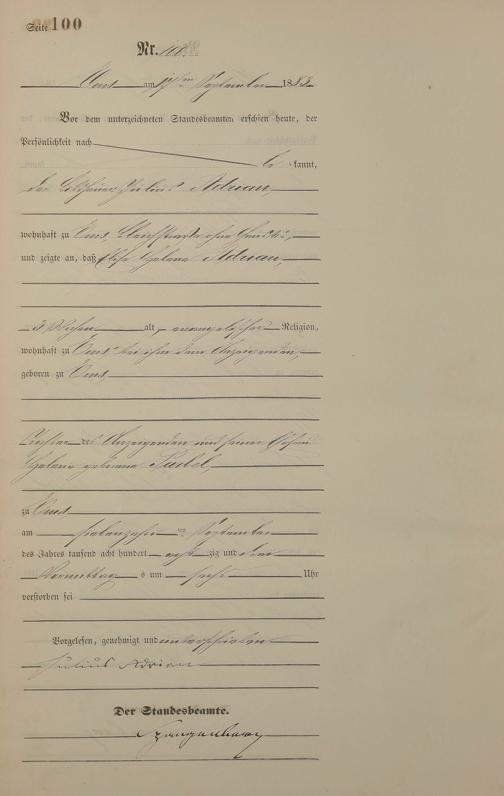 Seite 100
Nr. 100.
Ems am 17ten September 1883
Vor dem unterzeichneten Standesbeamten erschien heute, der
Persönlichkeit nach
be kannt,
der Julius Adrian,
wohnhaft zu Ems,
und zeigte an, daß Elise Helene Adrian,
3 Wochen alt, evangelischer Religion,
wohnhaft zu Ems bei ihm dem Anzeigenden,
geboren zu Ems
Tochter des Anzeigenden und seiner Ehefrau
Helene geborene
zu Ems
am siebenzehnten September
des Jahres tausend acht hundert achtzig und drei
Vormittags um sechs Uhr
verstorben sei
Vorgelesen, genehmigt und unterschrieben
Julius Adrian
Der Standesbeamte.
Spangenberg